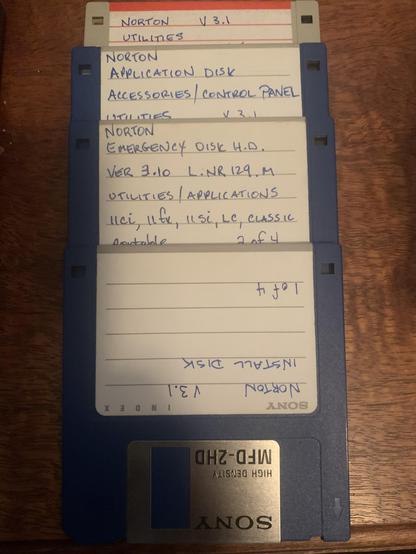 NORTON V 3.1
UTILITIES
NORTON
APPLICATION DISK
ACCESSORIES/CONTROL PANEL
UTILITIES V 3.1
NORTON
EMERGENCY DISK H.D.
VER 3.10 L.NR 129.M
UTILITIES/APPLICATIONS
IIci, IIfx, IIsi, LC, CLASSIC
Portable 2 of 4
SONY INDEX
NORTON V 3.1
INSTALL DISK
1 of 4
SONY
HIGH DENSITY
MFD-2HD